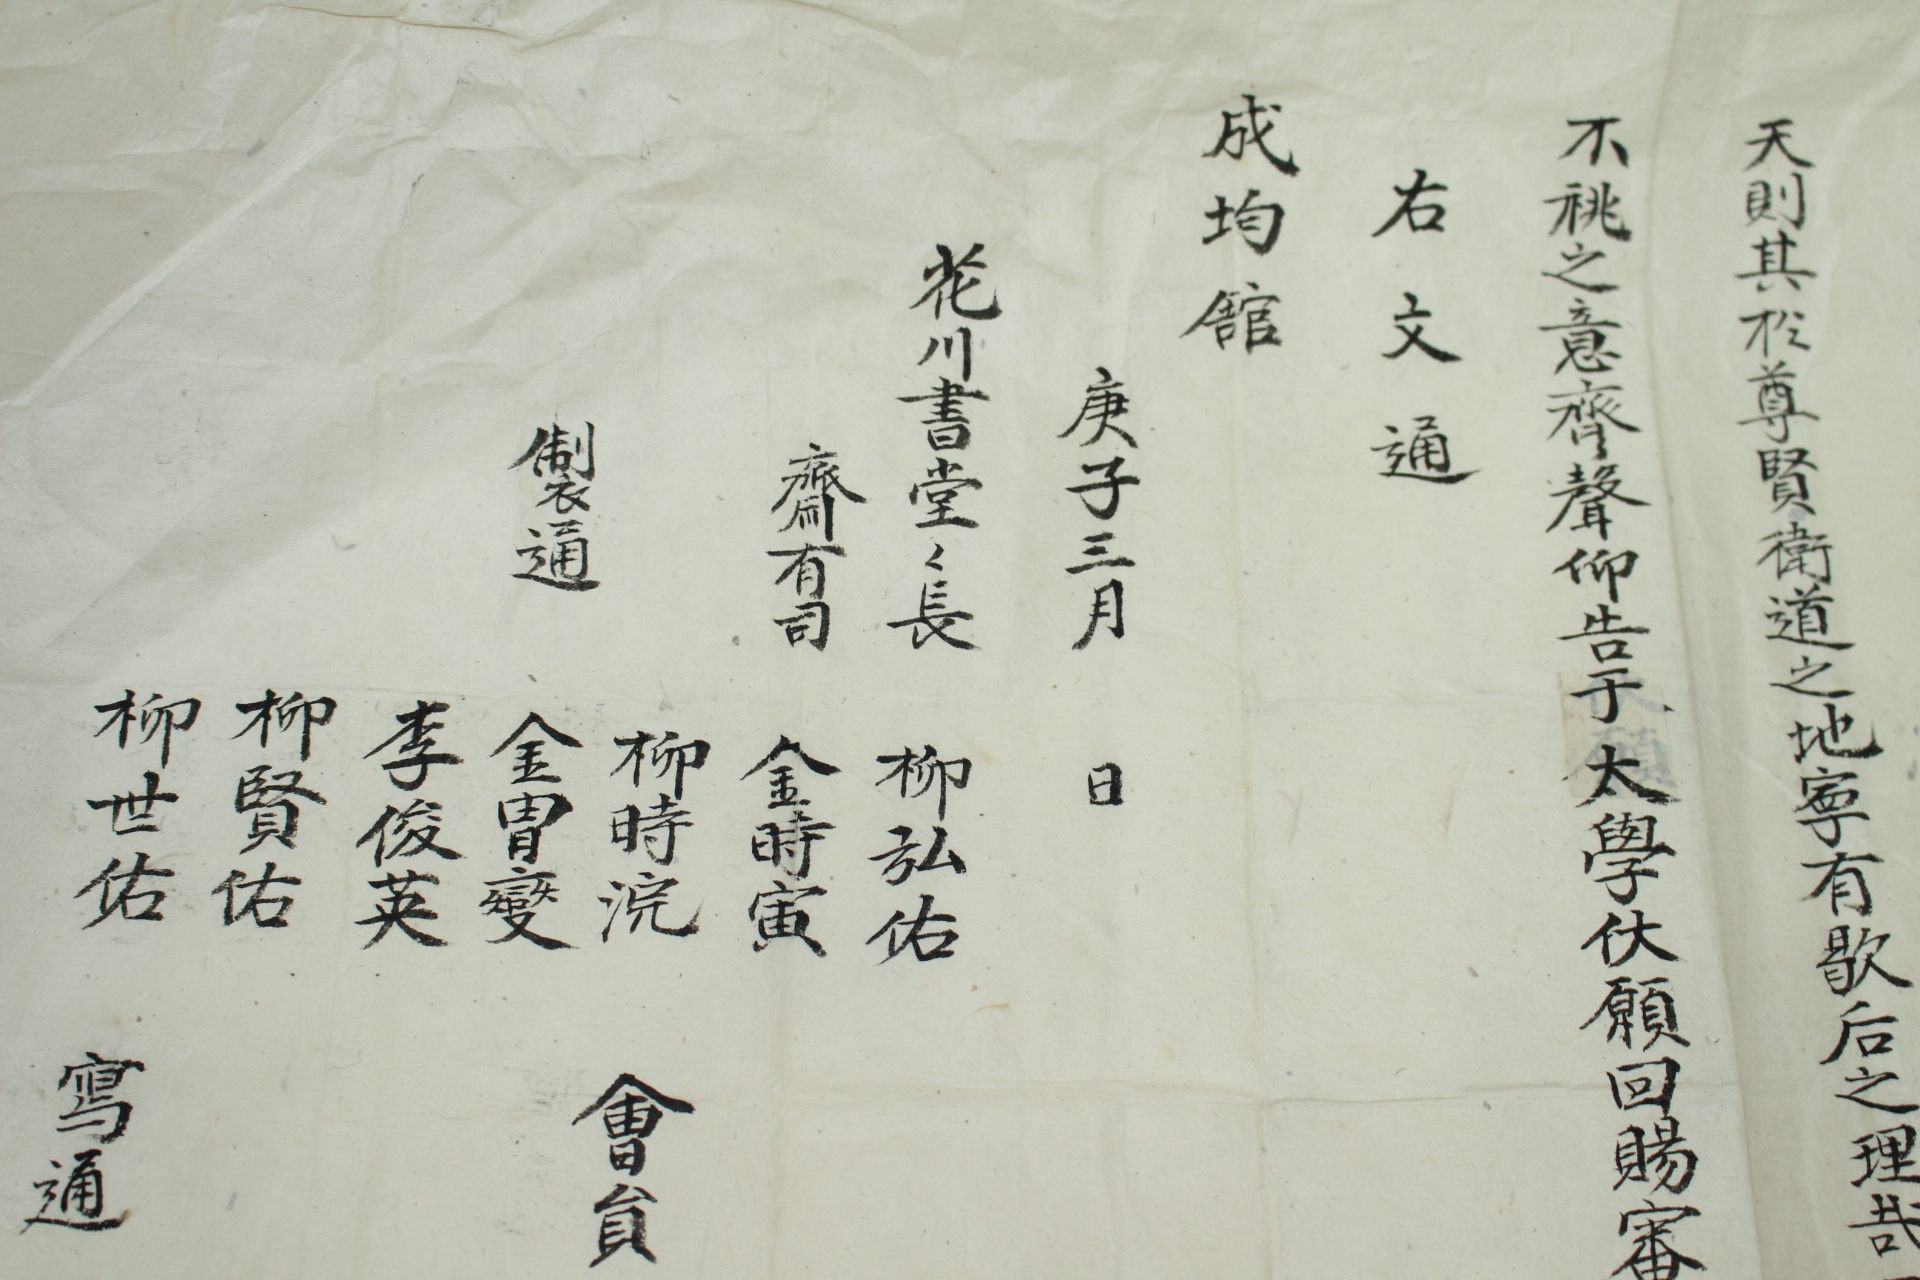 天則其於尊賢衛道之地寧有歇后之理哉
不祧之意齊聲仰告于太學伏願回賜審
右文通
成均館
庚子三月 日
花川書堂々長 柳弘佑
齋有司 金時寅
柳時浣 會員
製通 金胄燮
李俊英
柳賢佑
柳世佑 寫通